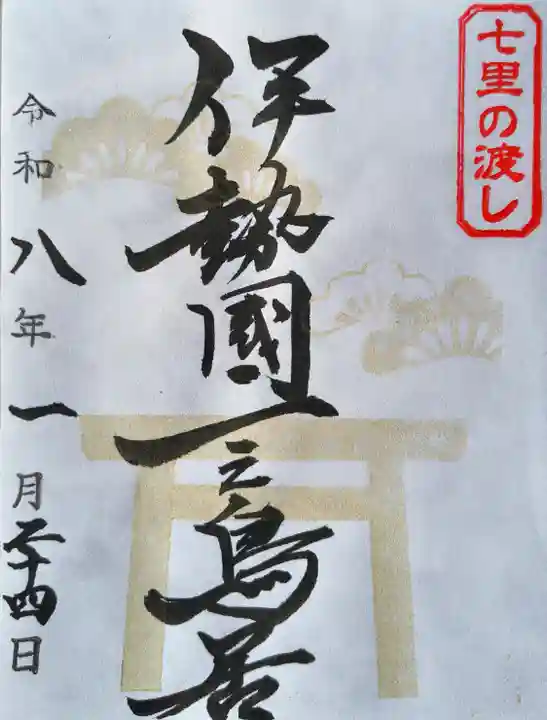 七里の渡し
伊勢國一之鳥居
令和八年一月二十四日